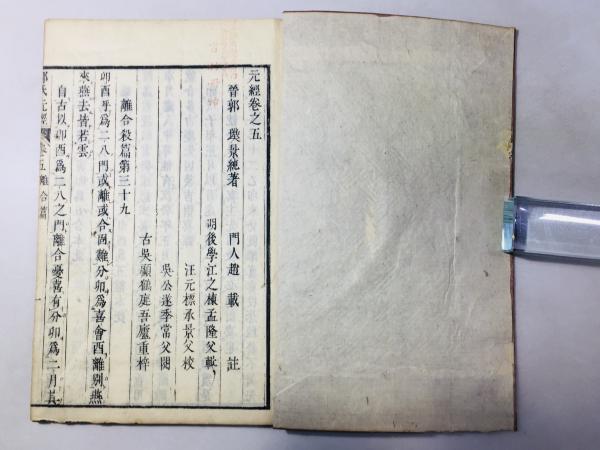 元經卷之五
晉郭璞景純著 門人趙載註
明後學江之棟孟隆父輯
汪元標承景父校
吳公遂季常父閱
古吳顧鶴庭吾廬重梓
離合殺篇第三十九
卯酉乎爲二八門或離或合困難分卯爲喜會酉離別燕
來燕去皆若雲
自古以卯酉爲二八之門離合憂喜有分卯爲二月其
郭氏元經 卷五離合篇